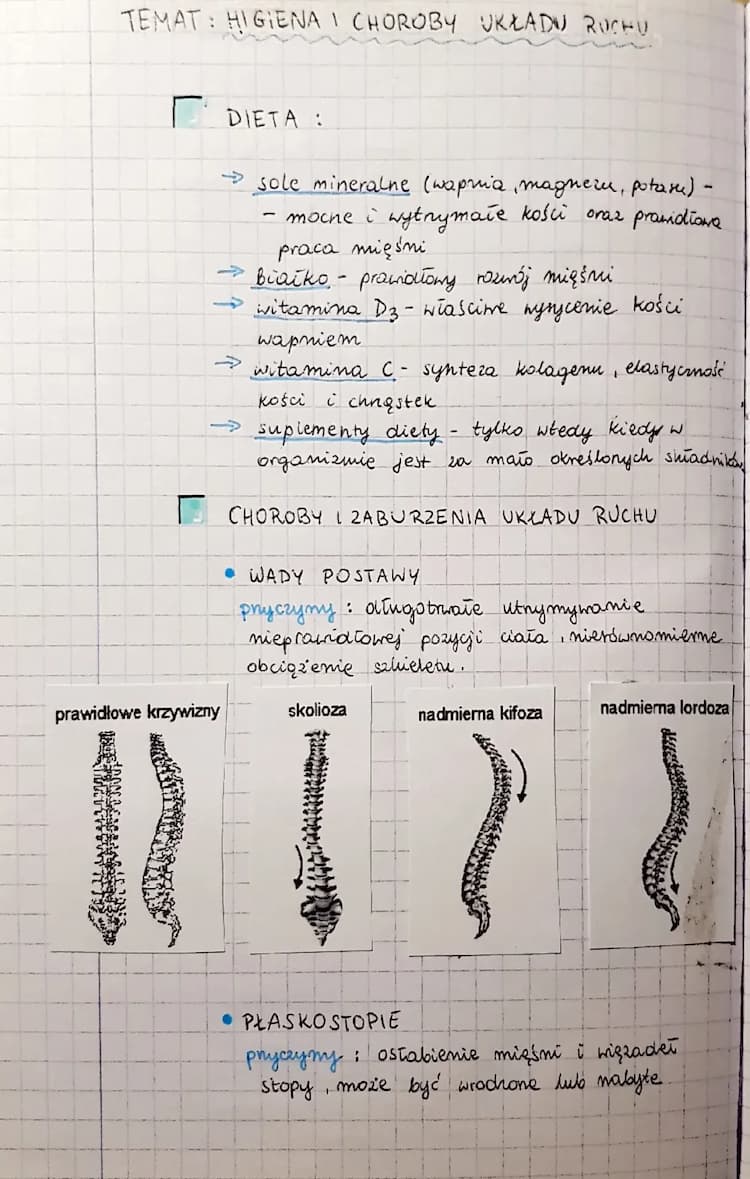 TEMAT: HIGIENA I CHOROBY UKŁADU RUCHU
DIETA :
→ sole mineralne (wapnia, magnezu, potasu) -
- mocne i wytrzymałe kości oraz prawidłowa
praca mięśni
→ Białko - prawidłowy rozwój mięśni
→ witamina D3 - właściwe wysycenie kości
wapniem
→ witamina C - synteza kolagenu, elastyczność
kości i chrząstek
→ suplementy diety - tylko wtedy kiedy w
organizmie jest za mało określonych składników
CHOROBY I ZABURZENIA UKŁADU RUCHU
• WADY POSTAWY
przyczyny : długotrwałe utrzymywanie
nieprawidłowej pozycji ciała, nierównomierne
obciążenie szkieletu.
prawidłowe krzywizny
skolioza
nadmierna kifoza
nadmierna lordoza
• PŁASKOSTOPIE
przyczyny : osłabienie mięśni i więzadeł
stopy, może być wrodzone lub nabyte